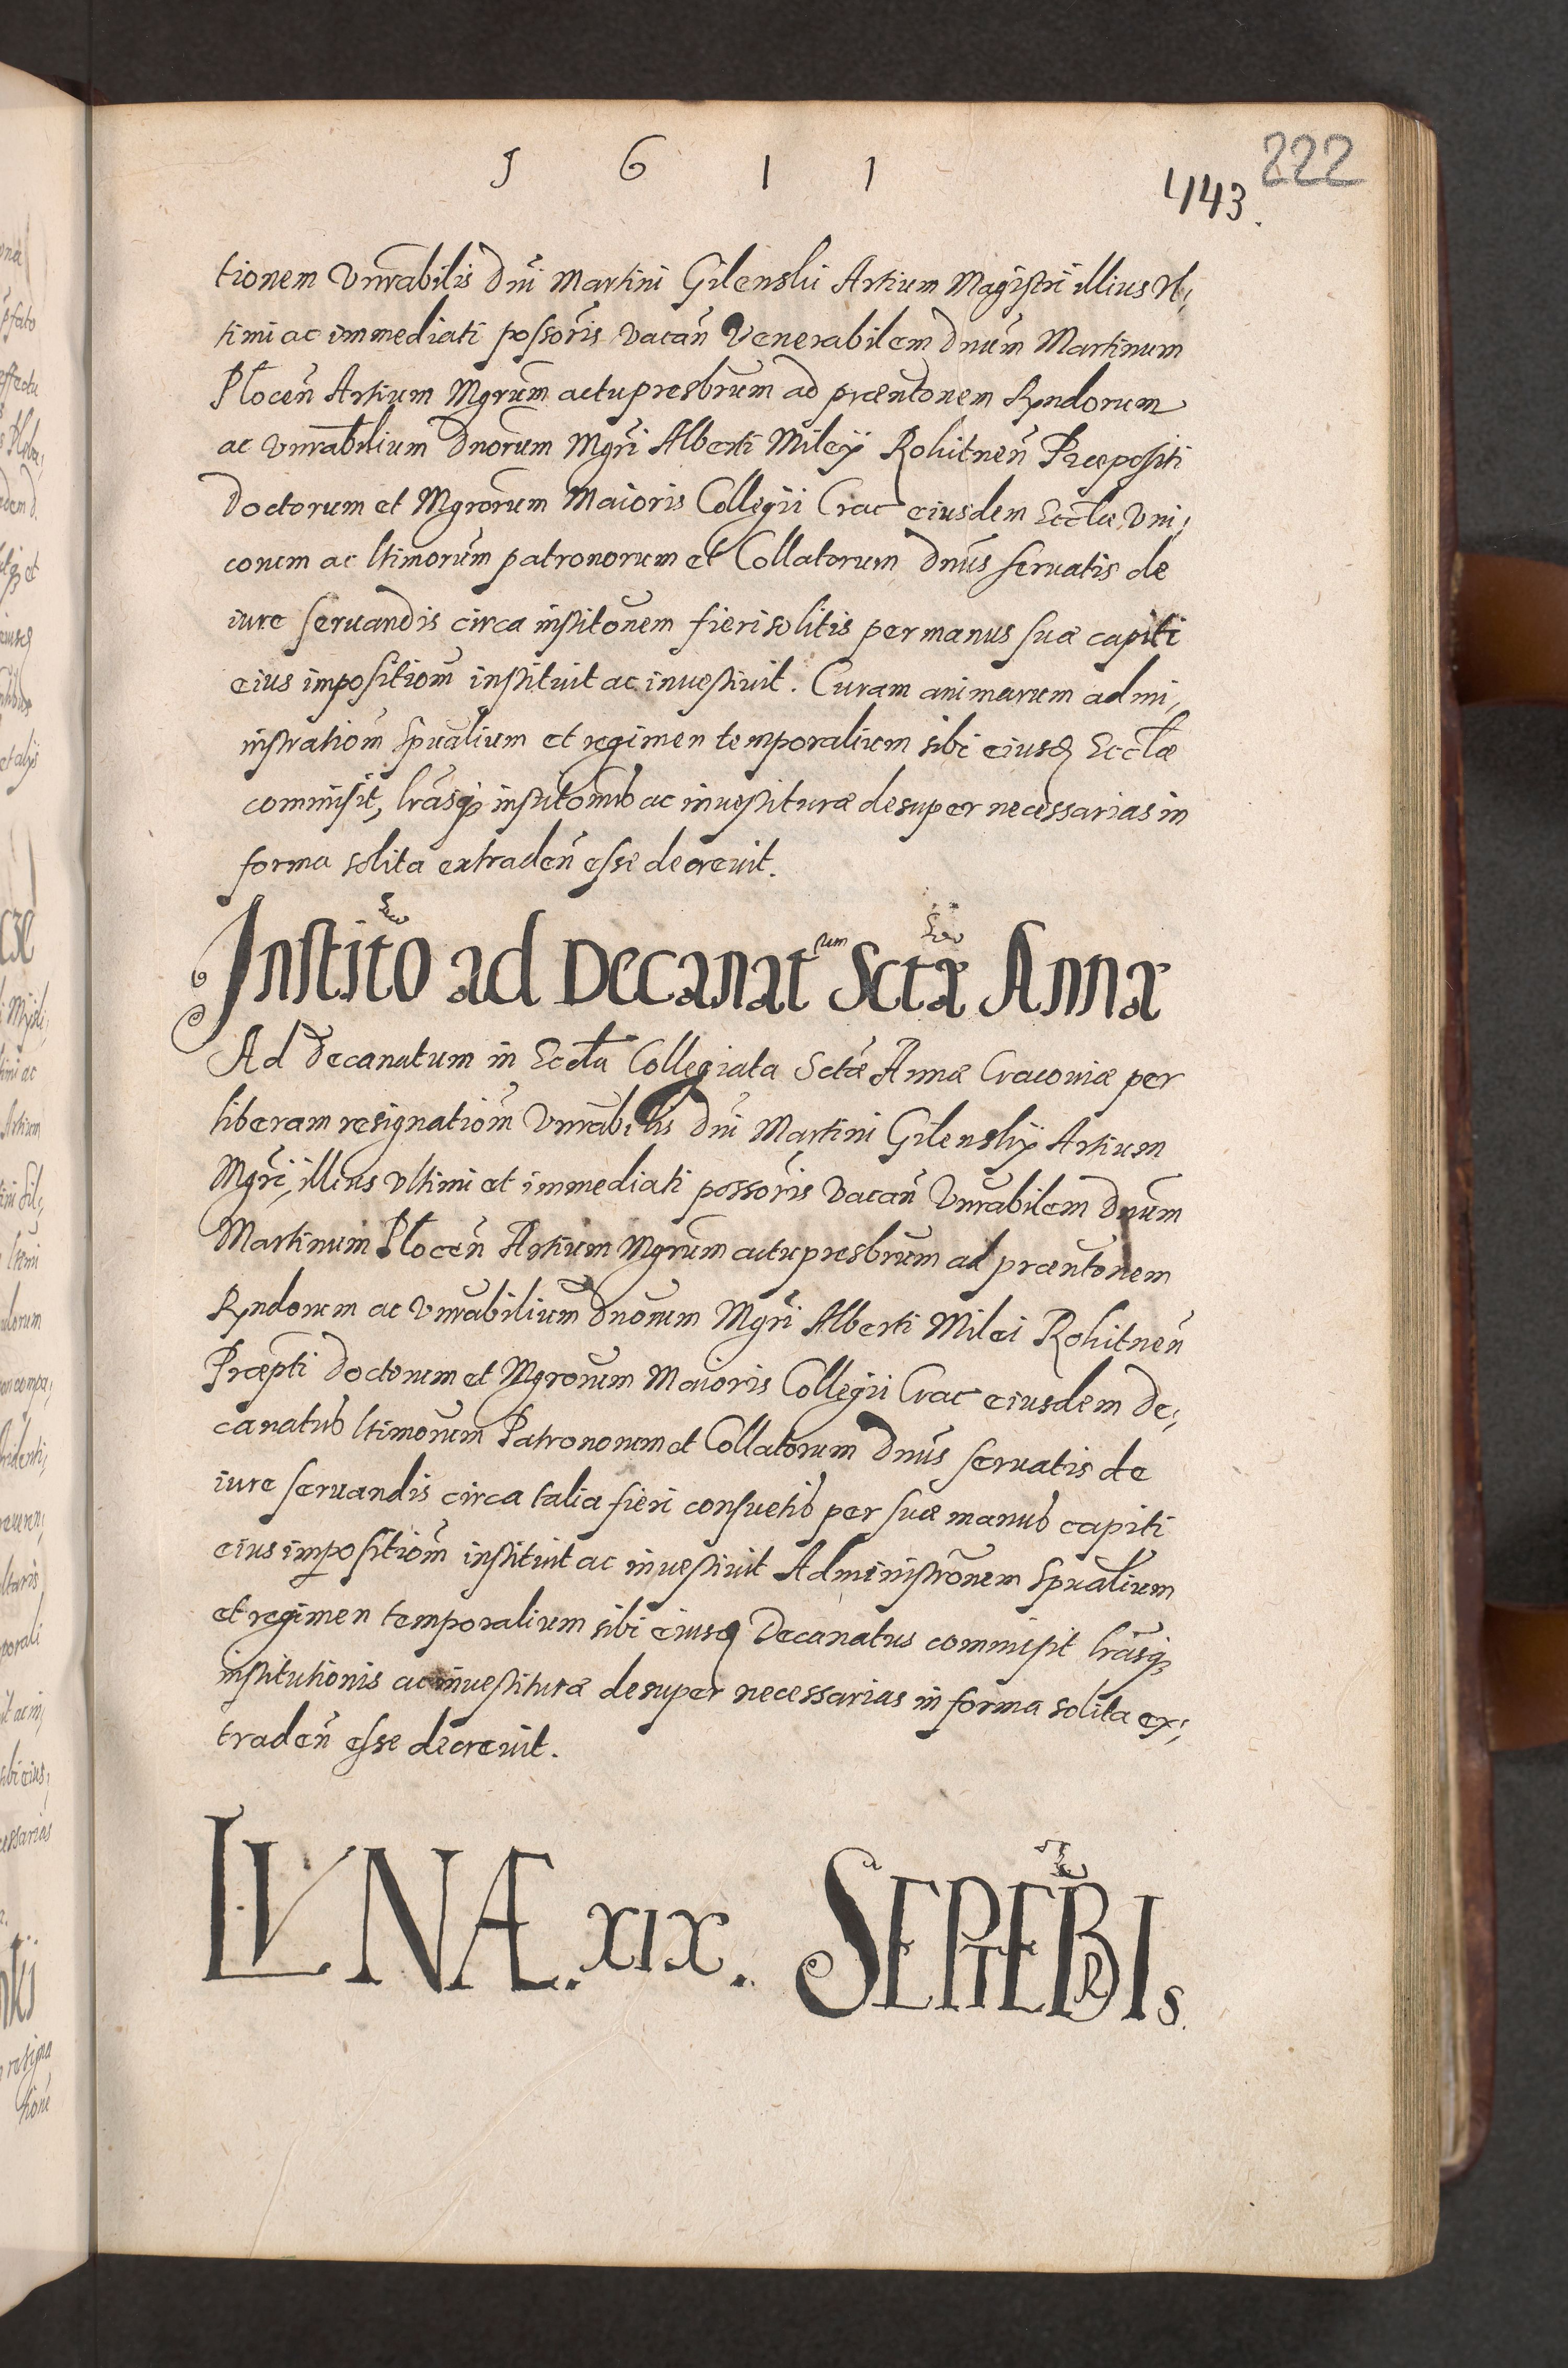 1 6 1 1
222
443.
tionem Vnrabilis Dni Martini Gilenskii Artium Magistri illius Vl,
timi ac immediati possoris vacan Venerabilem Dnum Martinum
Plocen Artium Mgrum actu presbrum ad præntonem Rndorum
ac Vnrabilium Dnorum Mgri Alberti Mileÿ Rohitnen Præpositi
Doctorum et Mgrorum Maioris Collegii Crac eiusdem Eccłæ Vni,
conem ac ltimorum patronorum et Collatorum Dnus seruatis de
iure seruandis circa institonem fieri solitis per manus suæ capiti
eius impositiom instituit ac inuestiuit. Curam animarum admi,
nistratiom Spualium et regimen temporalium sibi eiusq Eccłæ
commisit, lrasq institonis ac inuestituræ desuper necessarias in
forma solita extraden esse decreuit.
Instito ad Decanatum Sctæ Annæ
Ad Decanatum in Eccła Collegiata Sctæ Annæ Cracouiæ per
liberam resignatiom Vnrabilis Dni Martini Gilenskiÿ Artium
Mgri, illius vltimi et immediati possoris vacan Vnrabilem Dnum
Martinum Plocen Artium Mgrum actu presbrum ad præntonem
Rndorum ac Vnrabilium Dnorum Mgri Alberti Milei Rohitnen
Præpti Doctorum et Mgrorum Maioris Collegii Crac eiusdem De,
canatus ltimorum Patronorum et Collatorum Dnus seruatis de
iure seruandis circa talia fieri consuetis per suæ manus capiti
eius impositiom instituit ac inuestiuit Administronem Spualium
et regimen temporalium sibi eiusq Decanatus commisit lrasq
institutionis ac inuestituræ desuper necessarias in forma solita ex,
traden esse decreuit.
LVNÆ. XIX. SEPTEBRIs.